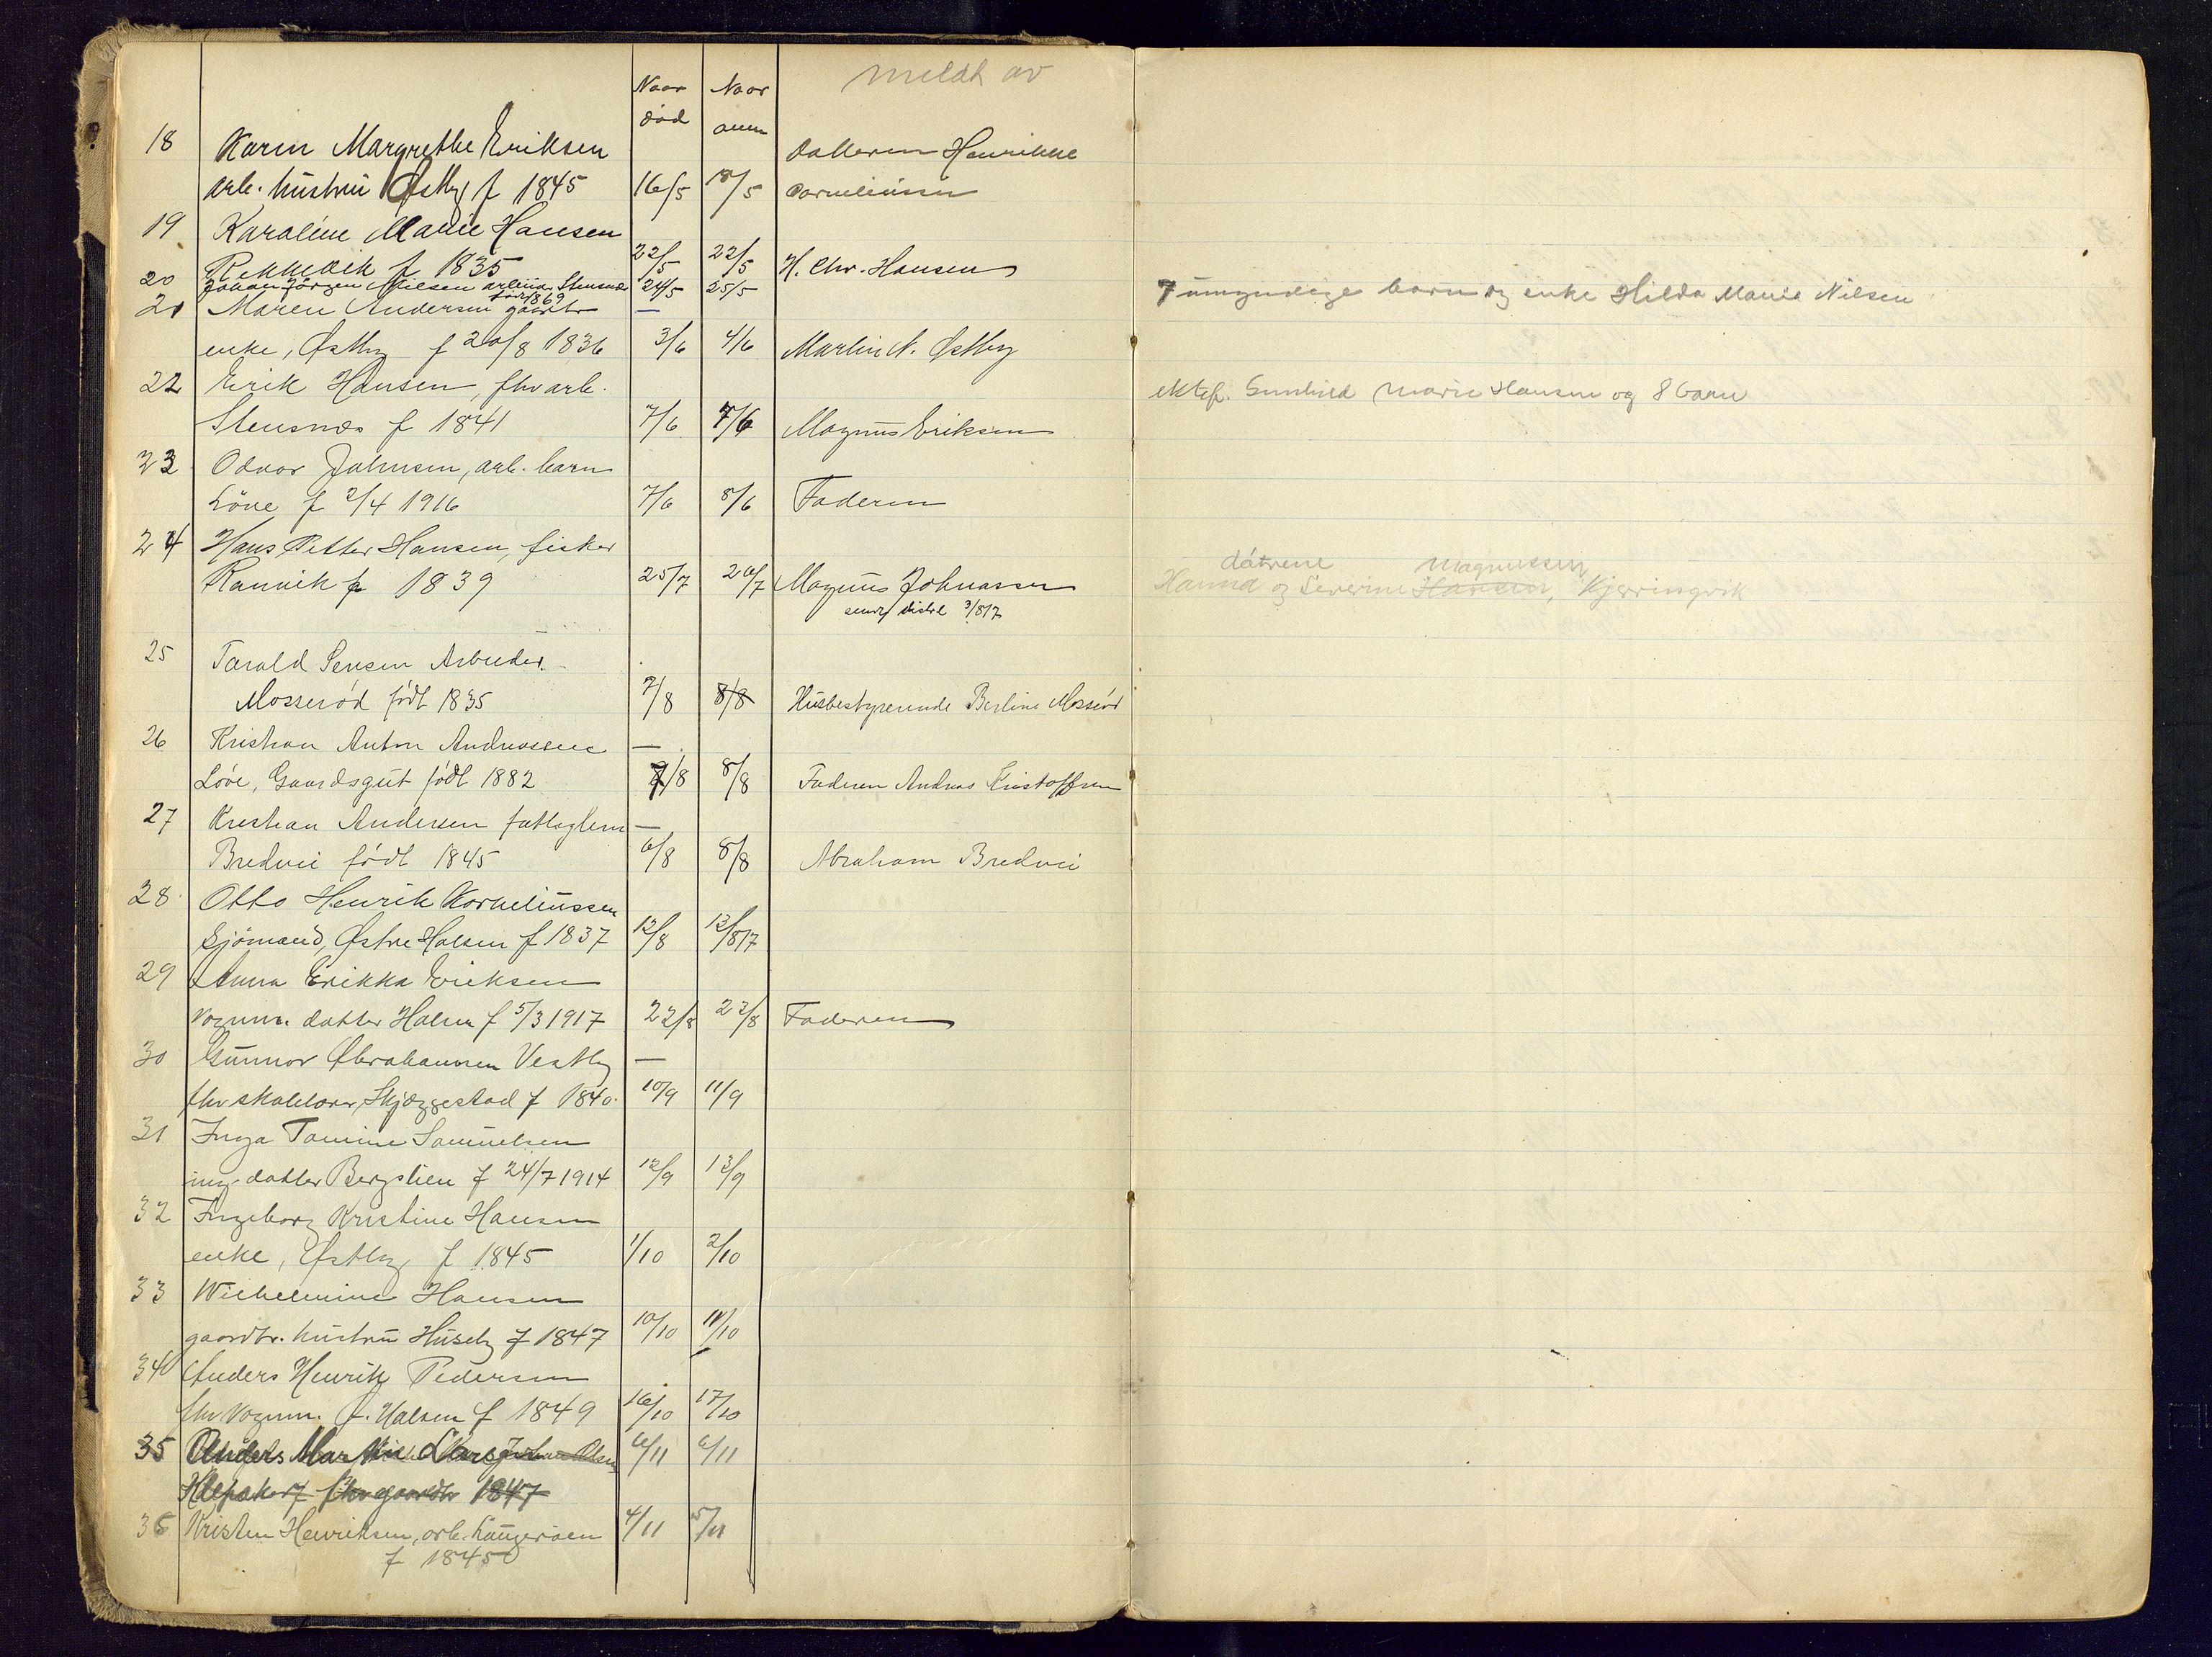 Naar Naar meldt av
død anm
18 Karen Margrethe Eriksen datteren Henrikke
arb. hustru Østby f 1845 16/5 18/5 Corneliussen
19 Karoline Marie Hansen
Rekkevik f 1835 22/5 22/5 H. Chr. Hansen
20 Johan Jörgen Nilsen Stensnæs 24/5 25/5 7 umyndige barn og enke Hilda Marie Nilsen
født 1869
21 Maren Andersen gaardbr —
enke, Østby f 20/8 1836 3/6 4/6 Martin A. Østby
22 Erik Hansen, fhv arb. ektef. Gunhild Marie Hansen og 8 barn
Stensnæs f 1841 7/6 7/6 Magnus Eriksen
23 Odvar Johnsen, arb. barn
Löve f 2/4 1916 7/6 8/6 Faderen
24 Hans Petter Hansen, fisker døtrene Magnussen
Ranvik f 1839 25/7 26/7 Magnus Johnassen Hanna og Severine Hansen, Kjerringvik
3/817
25 Tarald Jensen Arbeider
Mosserød født 1835 7/8 8/8 Husbestyrerinde Berline Mosserød
26 Kristian Anton Andreassen —
Løve, Gaardsgut født 1882 7/8 8/8 Faderen Andreas Kristoffersen
27 Kristian Andersen fattiglem —
Bredvei født 1845 6/8 8/8 Abraham Bredvei
28 Otto Henrik Korneliussen
Sjömand, Østre Halsen f 1837 12/8 13/817
29 Anna Erikka Eriksen
vognm. datter Halsen f 5/3 1917 22/8 23/8 Faderen
30 Gunnar Abrahamsen Vestby —
fhv skolelærer, Skjæggestad f 1840 10/9 11/9
31 Inga Tomine Samuelsen
datter Bergslien f 24/7 1914 12/9 13/9
32 Ingeborg Kristine Hansen
enke, Østby f 1845 1/10 2/10
33 Wilhelmine Hansen
gaardbr. hustru Huseby f 1847 10/10 11/10
34 Anders Henrik Pedersen
fhv vognm. Ø. Halsen f 1849 16/10 17/10
35 Anders Martin 6/11 6/11
Klepaker f fhv gaardbr 1847
36 Kristen Henriksen, arb. Laugeröen 4/11 5/11
f 1845